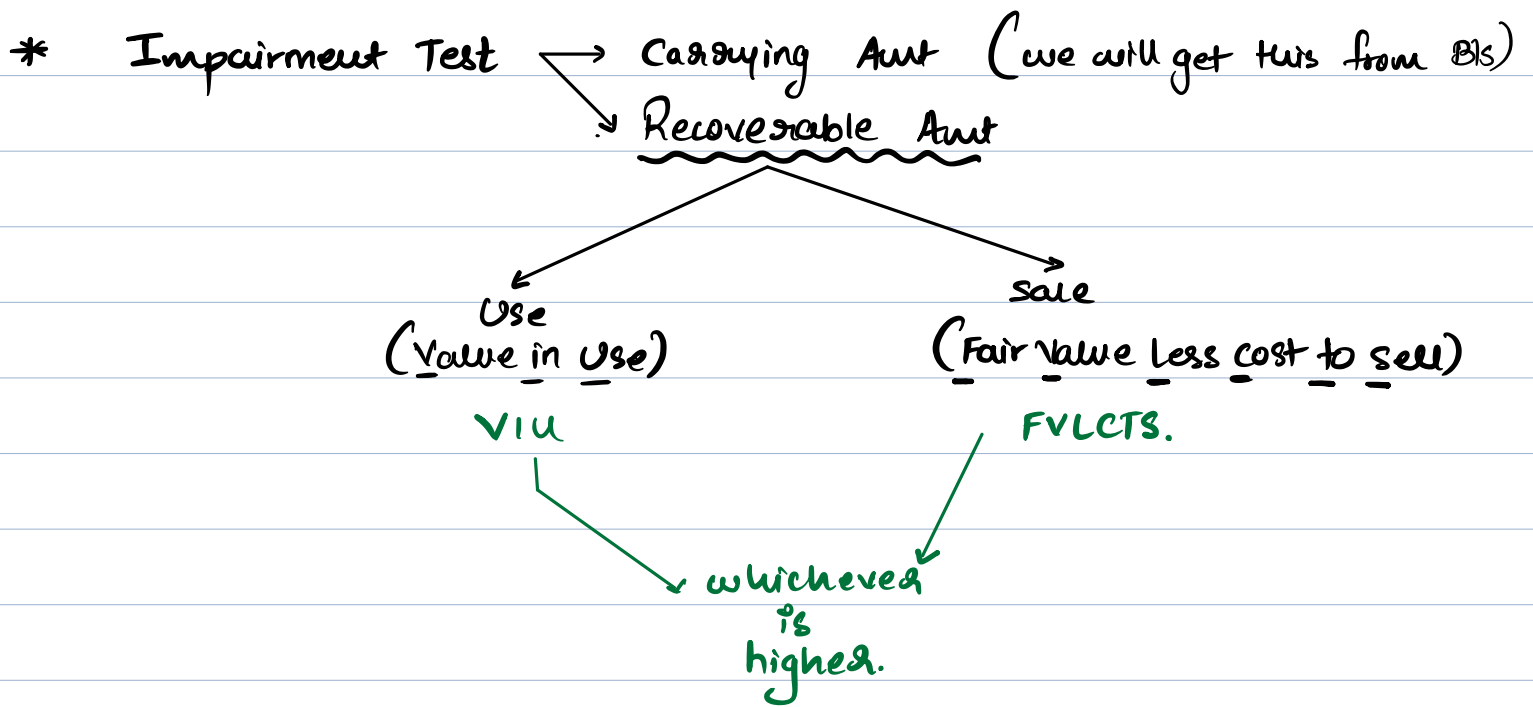 * Impairment Test → Carrying Amt (we will get this from B/s)
Recoverable Amt
Use
sale
(Value in Use)
(Fair Value Less cost to sell)
VIU
FVLCTS.
whichever
is
higher.